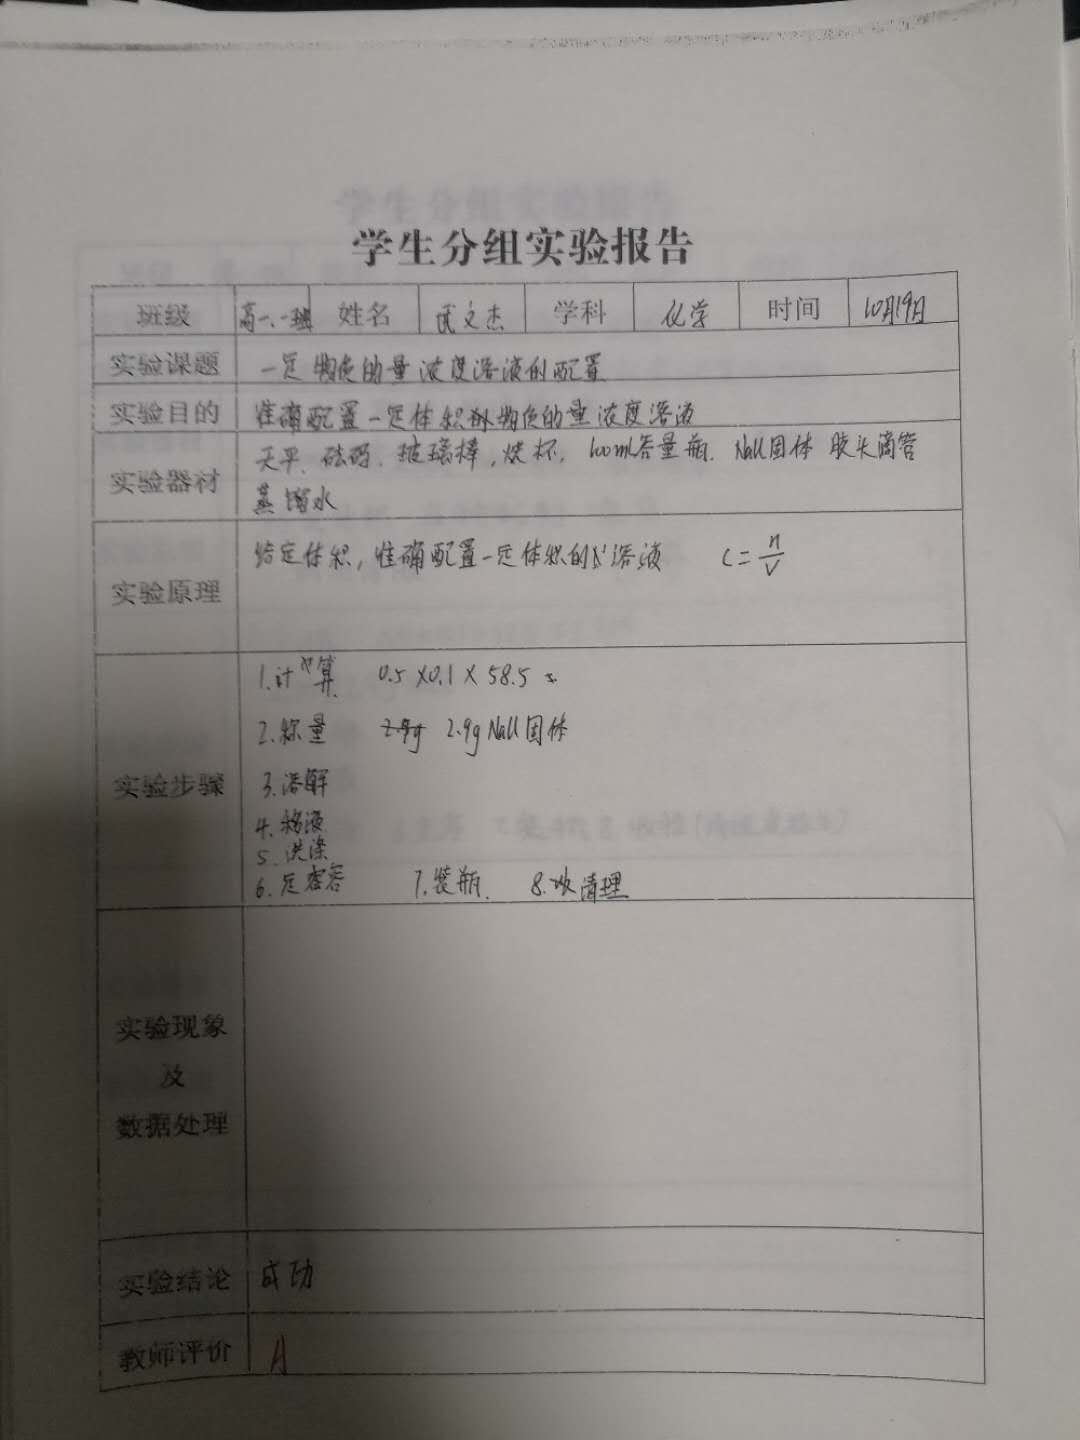 学生分组实验报告
班级 高一.一班 姓名 武文杰 学科 化学 时间 10月19日
实验课题 一定物质的量浓度溶液的配置
实验目的 准确配置一定体积物质的量浓度溶液
实验器材 天平. 砝码. 玻璃棒, 烧杯, 100ml容量瓶. NaCl固体 胶头滴管
蒸馏水
实验原理 给定体积, 准确配置一定体积的溶液 C=n/V
实验步骤
1.计算 0.5×0.1×58.5
2.称量 2.9g 2.9g NaCl固体
3.溶解
4.移液
5.洗涤
6.定容 7.装瓶. 8.清理
实验现象
及
数据处理
实验结论 成功
教师评价 A